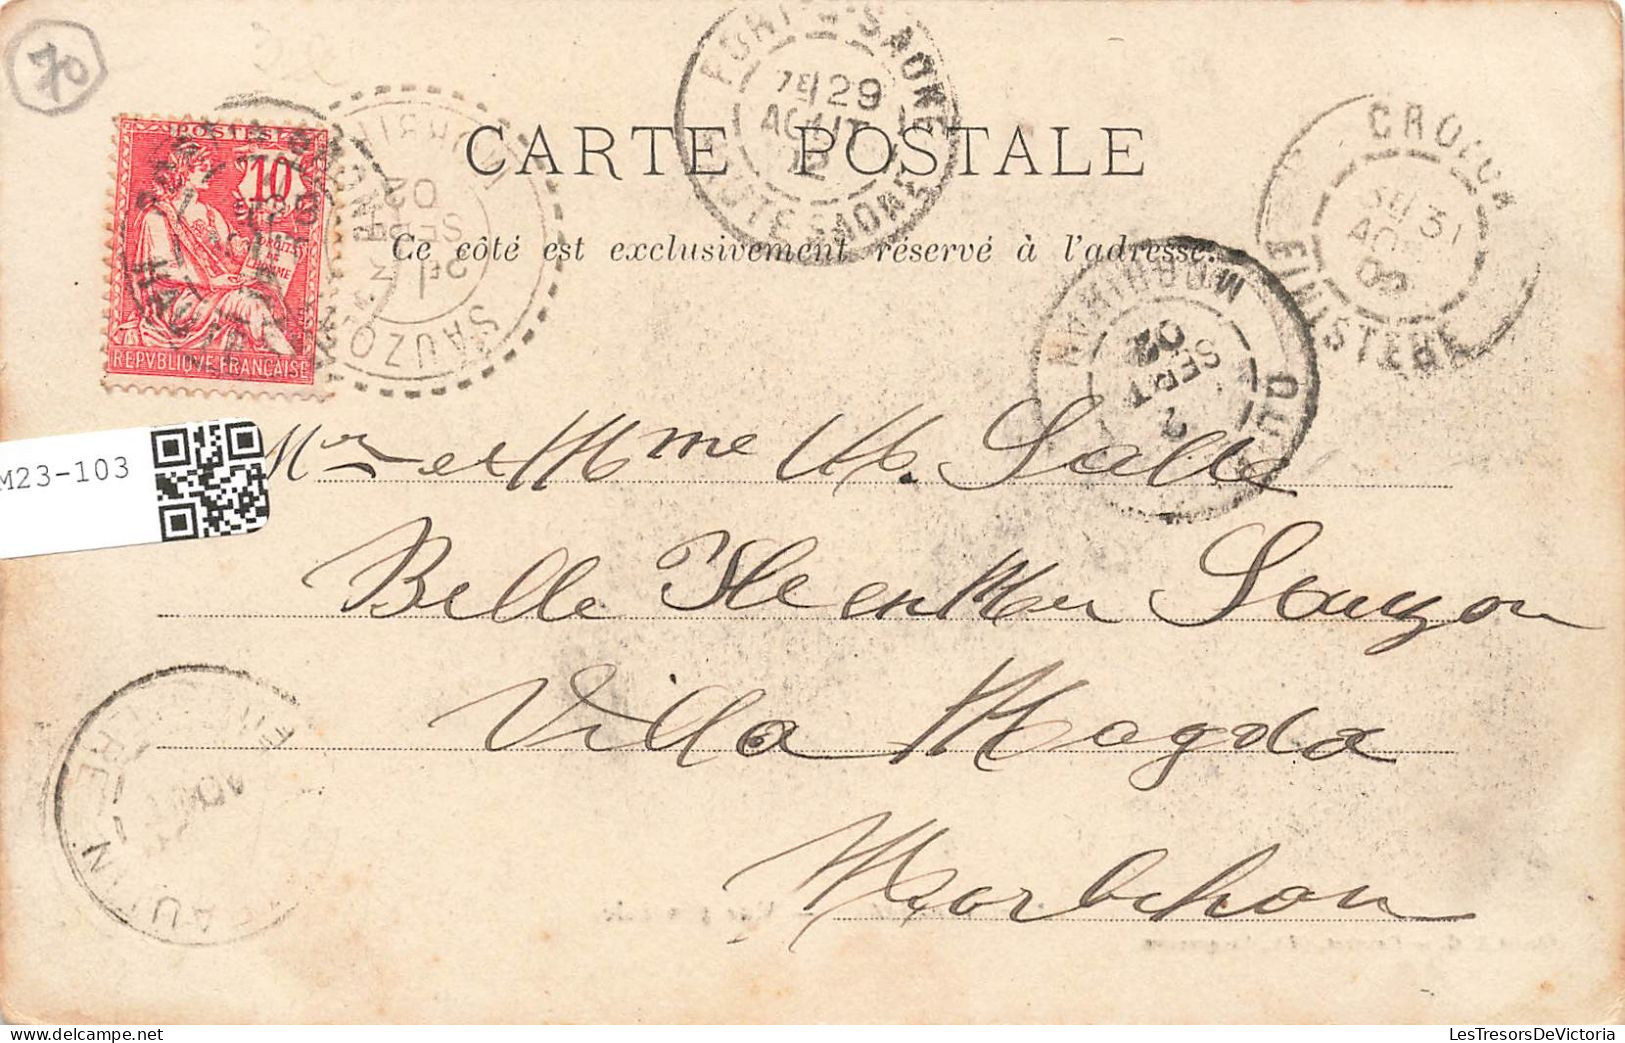 70
CARTE POSTALE
Ce côté est exclusivement réservé à l'adresse.
POSTES
10
REPVBLIQVE FRANÇAISE
PORT-S-SAONE
7E 29
AOUT
02
HAUTE-SAONE
CROZON
31
FINISTERE
MORBIHAN
2
SEPT
02
SAUZON
SEPT
02
M23-103
Mr et Mme M. Salle
Belle Ile en Mer Sauzon
Villa Magda
Morbihan
LesTresorsDeVictoria